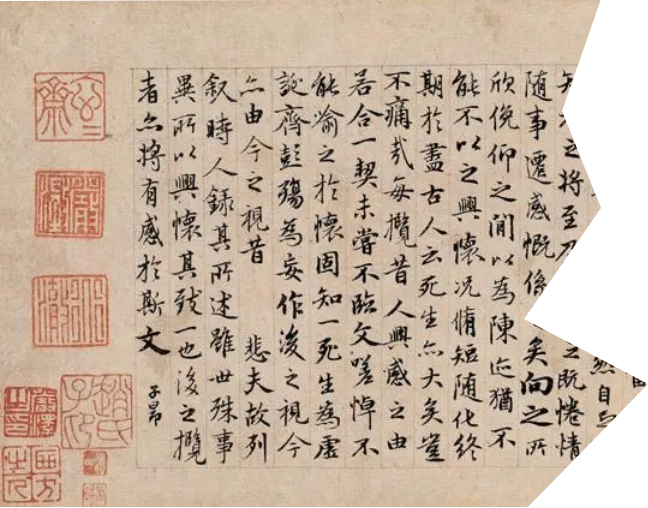 然自
之將至
既惓情
随事遷感慨係
矣向之所
欣俛仰之閒以為陳迹猶不
能不以之興懷況脩短随化終
期於盡古人云死生亦大矣豈
不痛哉每攬昔人興感之由
若合一契未嘗不臨文嗟悼不
能喻之於懷固知一死生為虛
誕齊彭殤為妄作後之視今
亦由今之視昔 悲夫故列
叙時人錄其所述雖世殊事
異所以興懷其致一也後之攬
者亦將有感於斯文
子昂
趙氏子昂